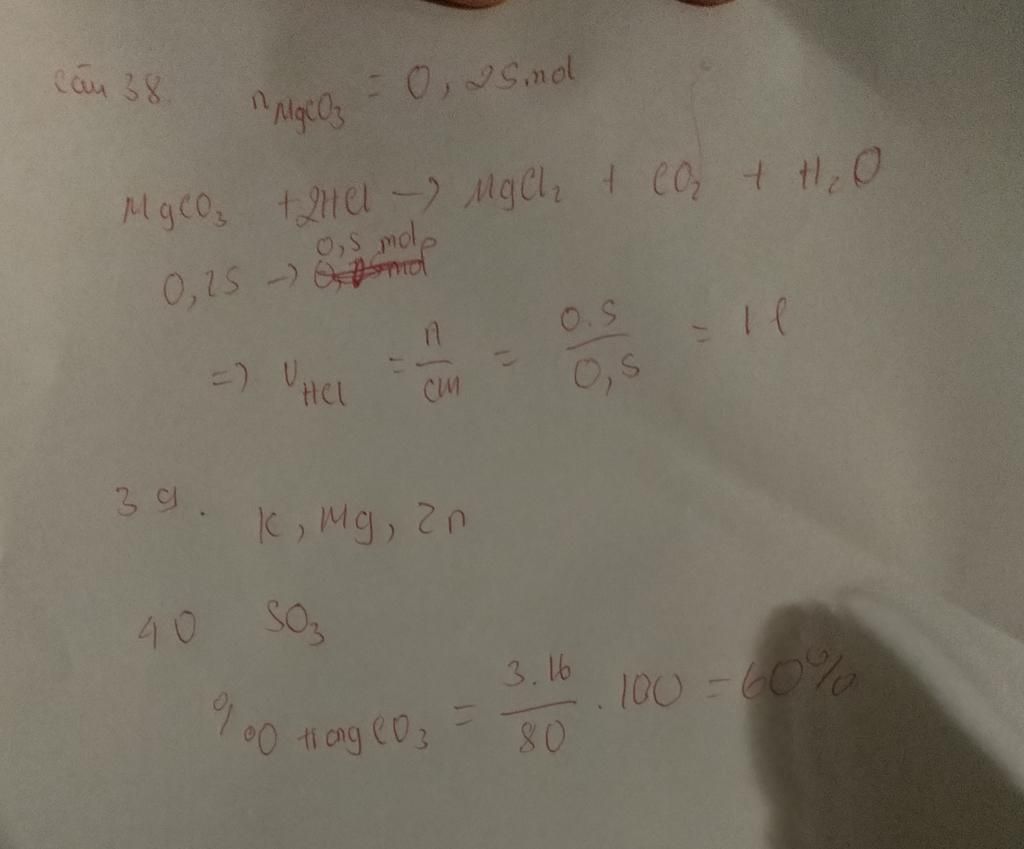 Câu 38. nMgCO3 = 0,25 mol
MgCO3 + 2HCl -> MgCl2 + CO2 + H2O
0,5 mol
0,25 ->
=> VHCl = n/CM = 0.5/0,5 = 1 l
39. K, Mg, Zn
40 SO3
%O trong CO3 = 3.16/80 . 100 = 60%